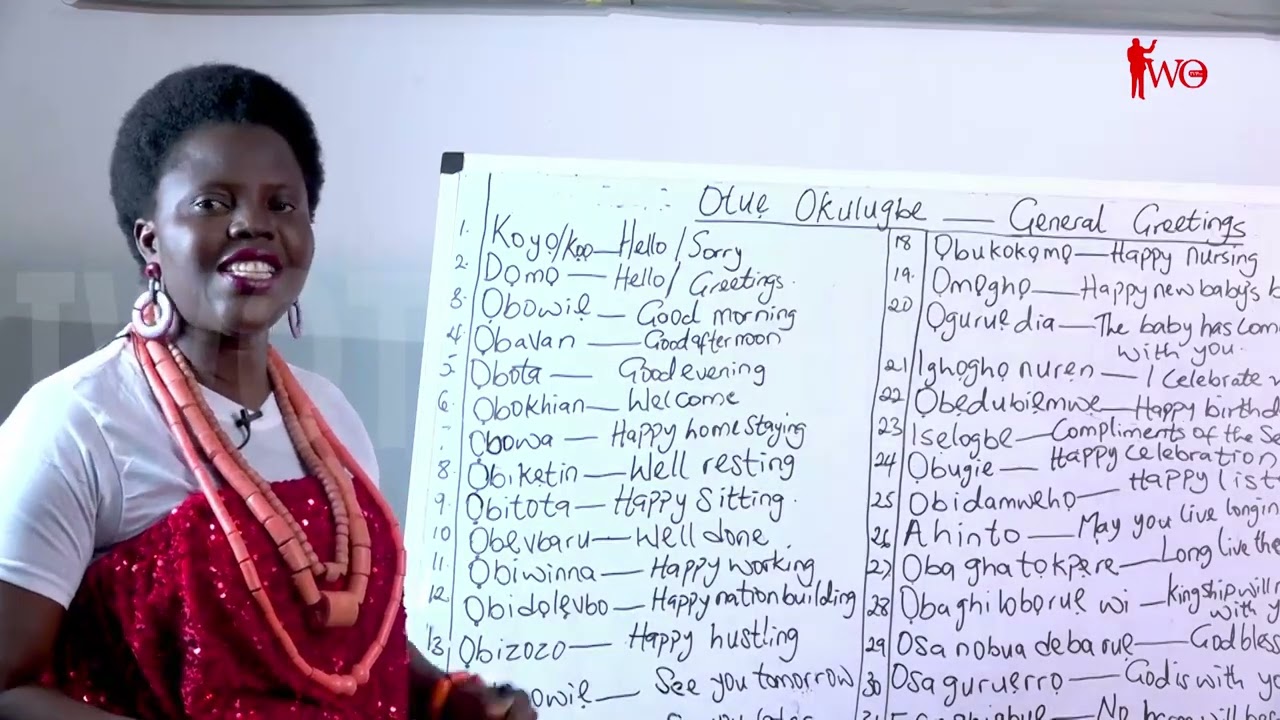 WO
Otuẹ Okulugbe — General Greetings
1. Koyọ/kọọ — Hello / Sorry
2. Dọmọ — Hello / Greetings.
3. Ọbowiẹ — Good morning
4. Ọbavan — Good afternoon
5 Ọbọta — Good evening
6. Ọbokhian — Welcome
Ọbowa — Happy home staying
8. Ọbiketin — Well resting
9. Ọbitota — Happy Sitting.
10 Ọbẹvbaru — Well done.
11. Ọbiwinna — Happy working
12 Ọbidọlẹvbo — Happy nation building
13 Ọbizozo — Happy hustling
owiẹ — See you tomorrow
18 Ọbukokọmọ — Happy nursing
19. Ọmọghọ — Happy new baby's b
20 Ọguruẹ dia — The baby has com
with you.
21 Ighọghọ nurẹn — I celebrate
22 Ọbẹdubiẹmwẹ — Happy birthd
23 Isẹlogbe — Compliments of the Se
24 Ọbugie — Happy celebration
25 Ọbidamwẹhọ — Happy list
26 Ahinto — May you live longin
27 Ọba ghatọkpẹrẹ — Long live the
28 Ọba ghilobọruẹ wi — kingship will
with y
29 Osanobua debaruẹ — God bless
30 Osaguruẹrrọ — God is with yo